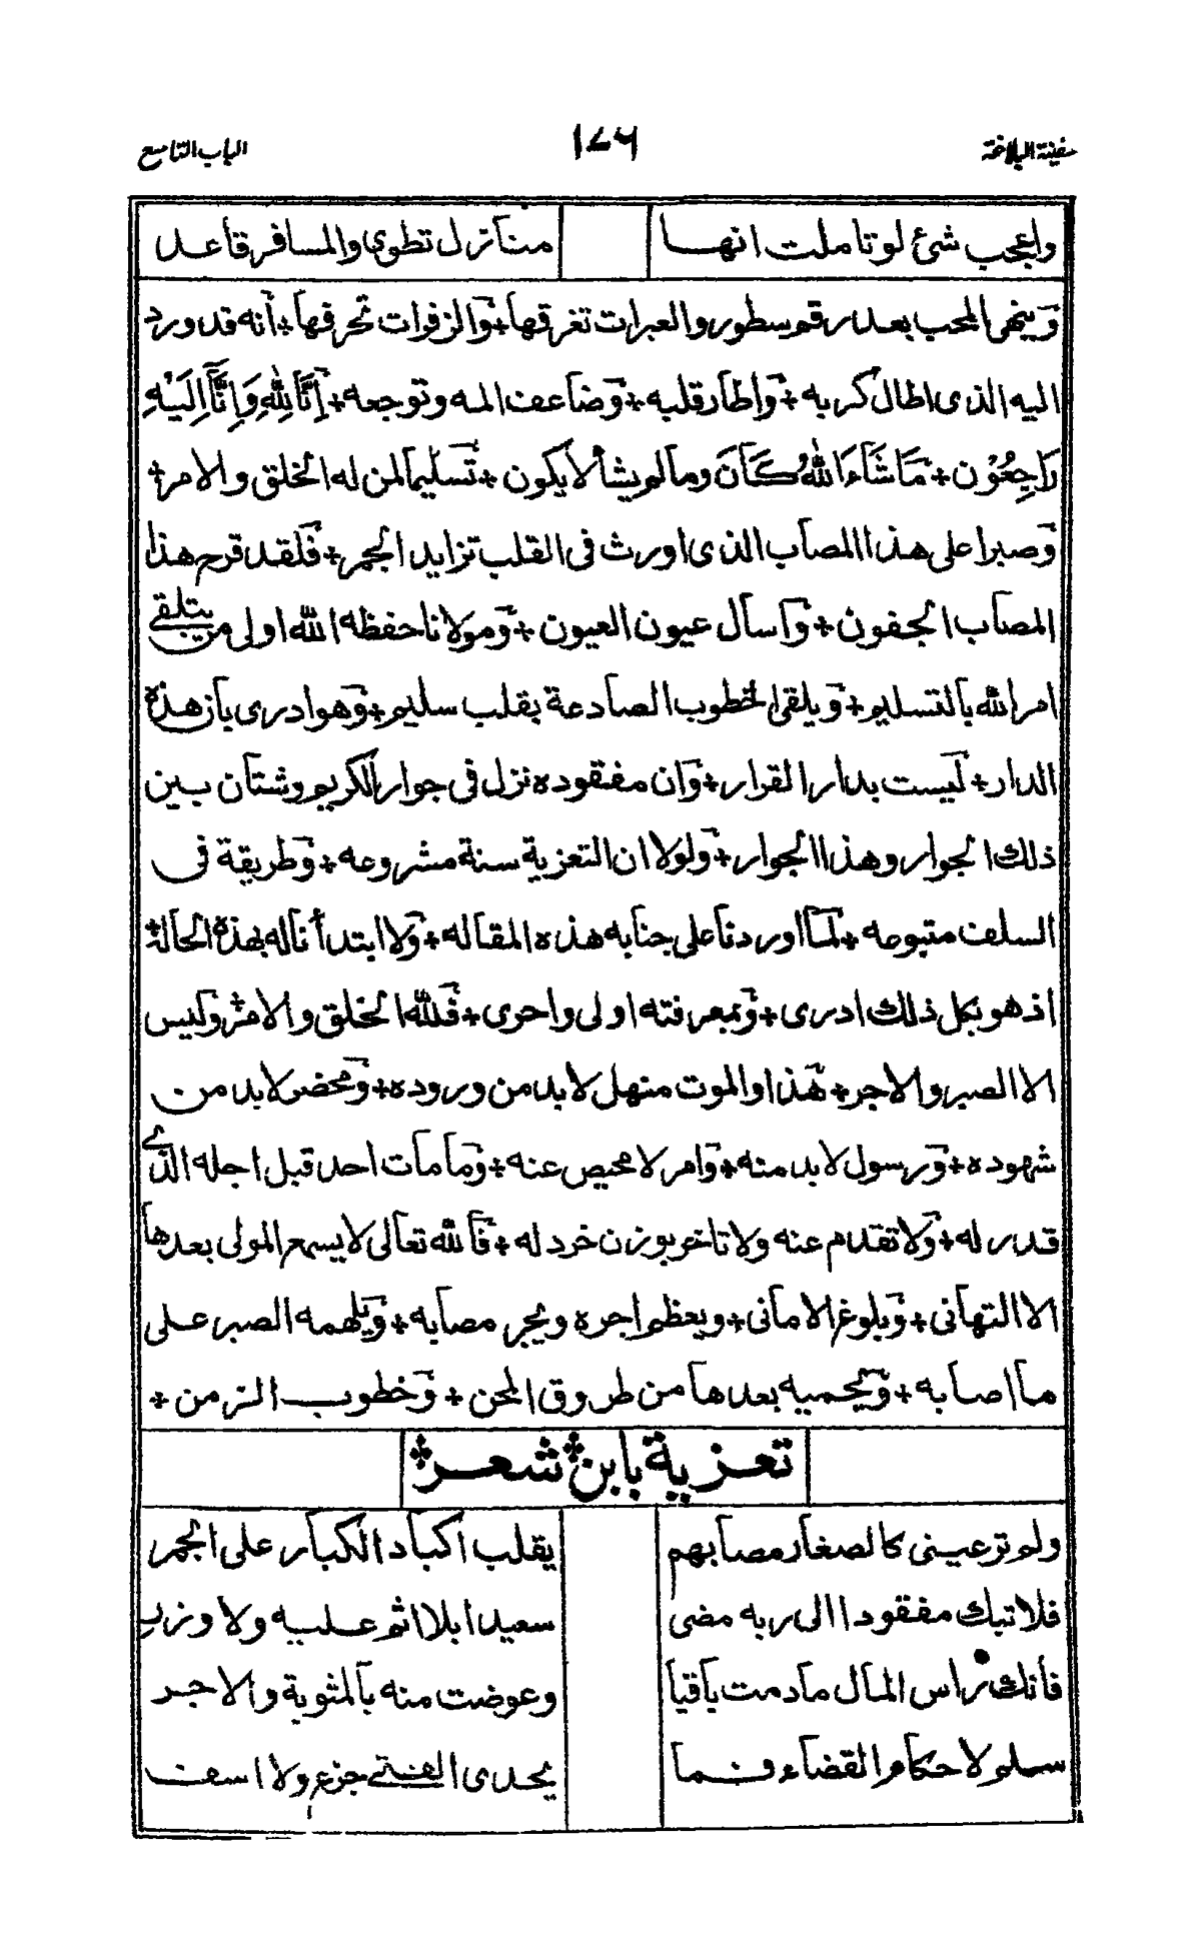 سفينة البلاغة ١٧٦ الباب التاسع
واعجب شئ لو تاملت انها منازل تطوى والمسافر قاعد
وينهى المحب بعد رقم سطور والعبرات تغرقها + والزفرات تحرقها + أنه قد ورد
اليه الذى اطال كربه + واطار قلبه + وضاعف المه وتوجعه + إِنَّا لِلّٰهِ وَإِنَّا إِلَيْهِ
رَاجِعُوْن + مَا شَاءَ اللّٰهُ كَانَ وما لم يشأ لا يكون + تسليما لمن له الخلق والامر +
وصبرا على هذا المصاب الذى اورث فى القلب تزايد الجمر + فلقد قرح هذا
المصاب الجفون + وأسال عيون العيون + ومولانا حفظه الله اولى من يتلقى
امر الله بالتسليم + ويلقى الخطوب الصادعة بقلب سليم + وهو ادرى بان هذه
الدار + ليست بدار القرار + وان مفقوده نزل فى جوار الكريم وشتان بين
ذلك الجوار وهذا الجوار + ولولا ان التعزية سنة مشروعه + وطريقة فى
السلف متبوعه + لما اوردنا على جنابه هذه المقاله + ولا ابتدأناله بهذه الحالة +
اذ هو بكل ذلك ادرى + وبمعرفته اولى واحرى + فلله الخلق والامر + وليس
الا الصبر والاجر + هذا والموت منهل لابد من وروده + ومحضر لابد من
شهوده + ورسول لابد منه + وامر لا محيص عنه + وما مات احد قبل اجله الذے
قدر له + ولا تقدم عنه ولا تاخر بوزن خردله + فالله تعالى لا يسمع المولى بعدها
الا التهانى + وبلوغ الامانى + ويعظم اجره ويجبر مصابه + ويلهمه الصبر على
ما اصابه + ويحميه بعدها من طروق المحن + وخطوب الزمن +
تعزية بابن + شعر +
ولم تر عينى كالصغار مصابهم يقلب اكباد الكبار على الجمر
فلا تبك مفقودا الى ربه مضى سعيدا بلا اثم عليه ولا وزر
فأنك راس المال ما دمت باقيا وعوضت منه بالمثوبة والاجر
سلم لاحكام القضاء فما يجدى الفتے جزع ولا اسف